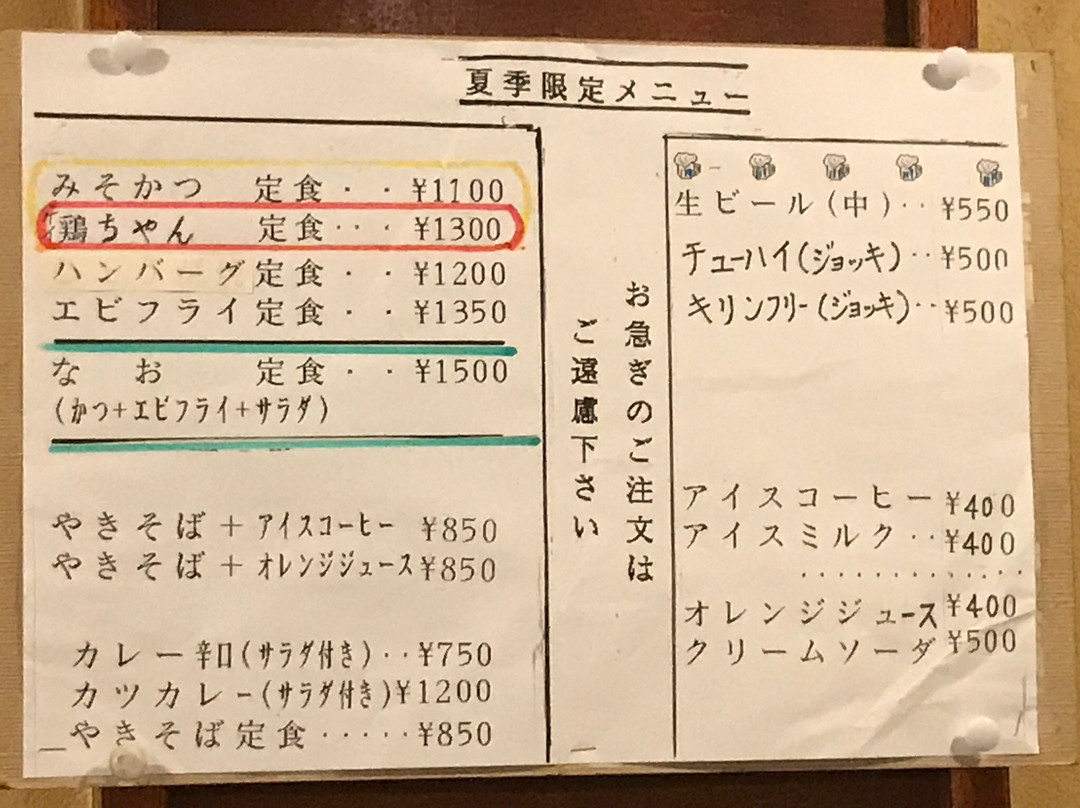 夏季限定メニュー
みそかつ 定食・・¥1100
鶏ちゃん 定食・・・¥1300
ハンバーグ定食・・¥1200
エビフライ定食・・¥1350
なお 定食・・¥1500
(かつ+エビフライ+サラダ)
やきそば+アイスコーヒー ¥850
やきそば+オレンジジュース¥850
カレー辛口(サラダ付き)・・¥750
カツカレー(サラダ付き)¥1200
やきそば定食・・・・・¥850
お急ぎのご注文は
ご遠慮下さい
生ビール(中)・・¥550
チューハイ(ジョッキ)・・¥500
キリンフリー(ジョッキ)・・¥500
アイスコーヒー¥400
アイスミルク・・¥400
オレンジジュース¥400
クリームソーダ¥500